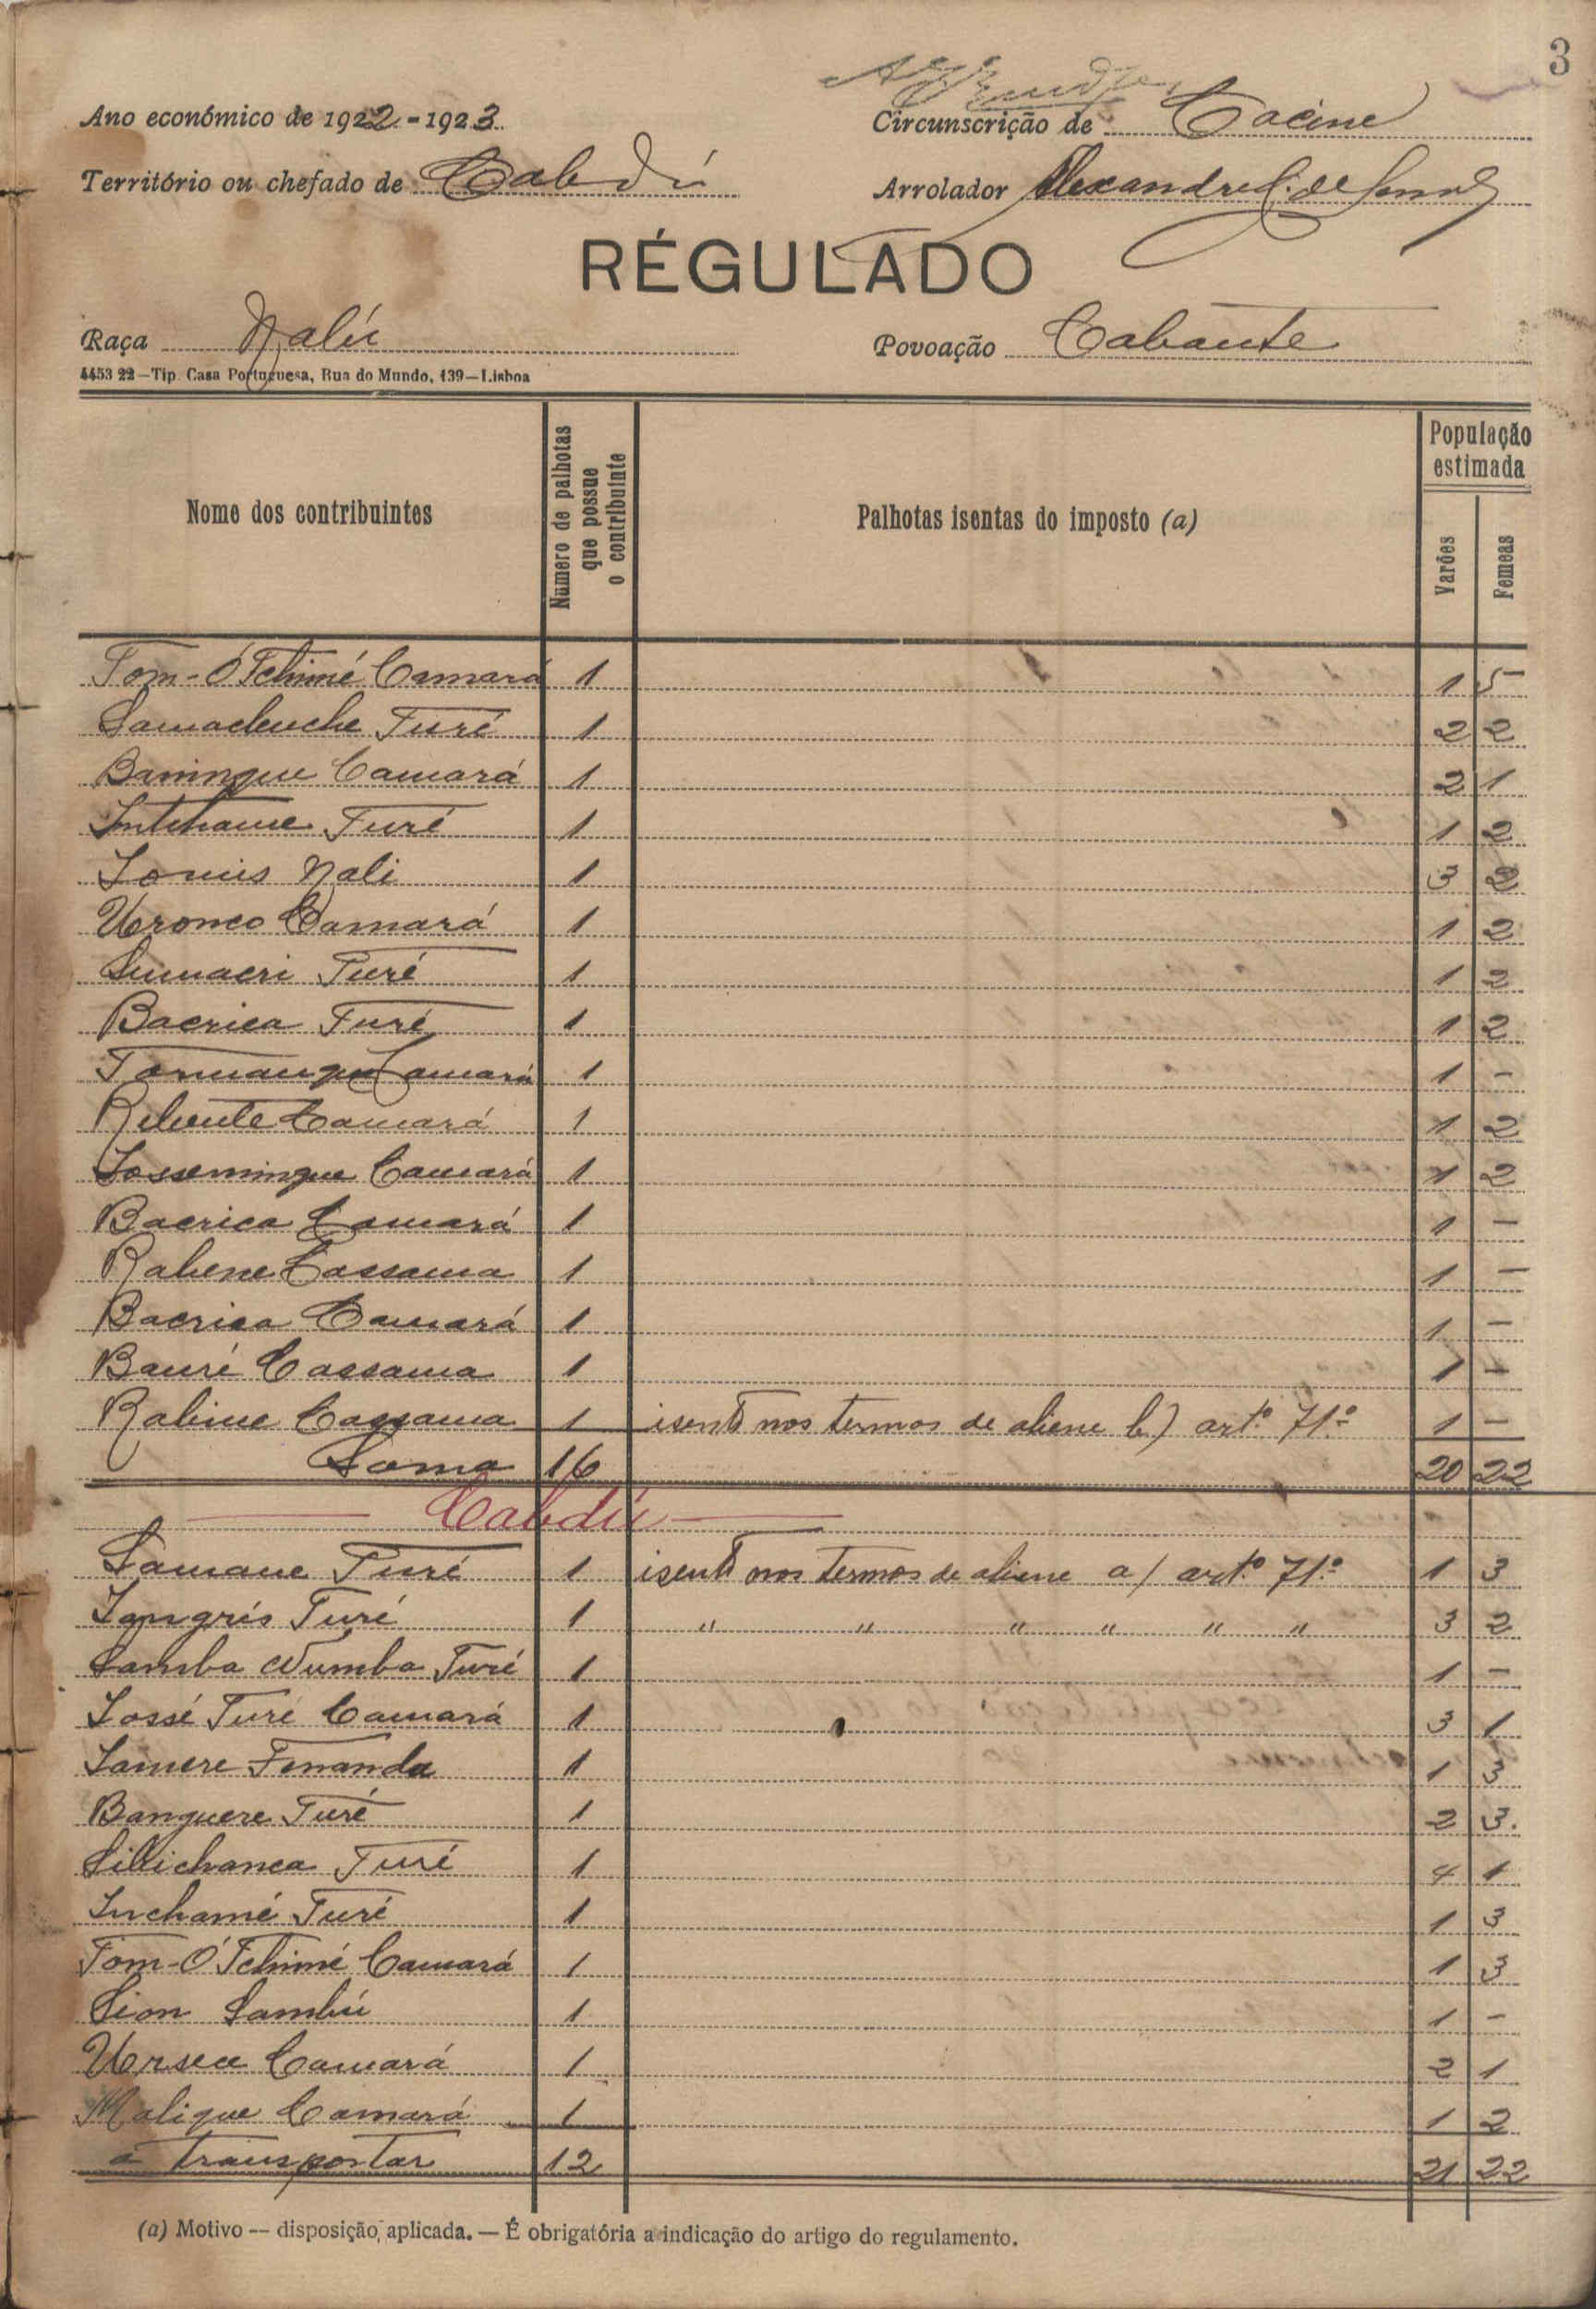 3
Ano económico de 1922-1923.
Circunscrição de Cacine
Território ou chefado de Cabedú
Arrolador Alexandre
RÉGULADO
Raça Nalú
Povoação Cabante
4453 22—Tip. Casa Portuguesa, Rua do Mundo, 139—Lisboa
Nome dos contribuintes
Número de palhotas que possue o contribuinte
Palhotas isentas do imposto (a)
População estimada
Varões
Femeas
Tom-Ó Tchimé Camará 1 1 5
Turé 1 2 2
Baningue Camará 1 2 1
Turé 1 1 2
Nali 1 3 2
Uronco Camará 1 1 2
Sumacri Turé 1 1 2
Bacrica Turé 1 1 2
Camará 1 1 -
Camará 1 1 2
Camará 1 1 2
Bacrica Camará 1 1 -
Rabene Cassama 1 1 -
Bacrica Camará 1 1 -
Bauré Cassama 1 1 -
Rabine Cassama 1 isento nos termos de aliene b) artº 71º 1 -
Soma 16 20 22
Cabdú
Samane Turé 1 isento nos termos de aliene a) artº 71º 1 3
Turé 1 " " " " " " 3 2
Samba Turé 1 1 -
Turé Camará 1 3 1
1 1 3
Banguere Turé 1 2 3.
Turé 1 4 1
Inchamé Turé 1 1 3
Tom-Ó Tchimé Camará 1 1 3
Sion Sambú 1 1 -
Camará 1 2 1
Malique Camará 1 1 2
a transportar 12 21 22
(a) Motivo — disposição aplicada. — É obrigatória a indicação do artigo do regulamento.